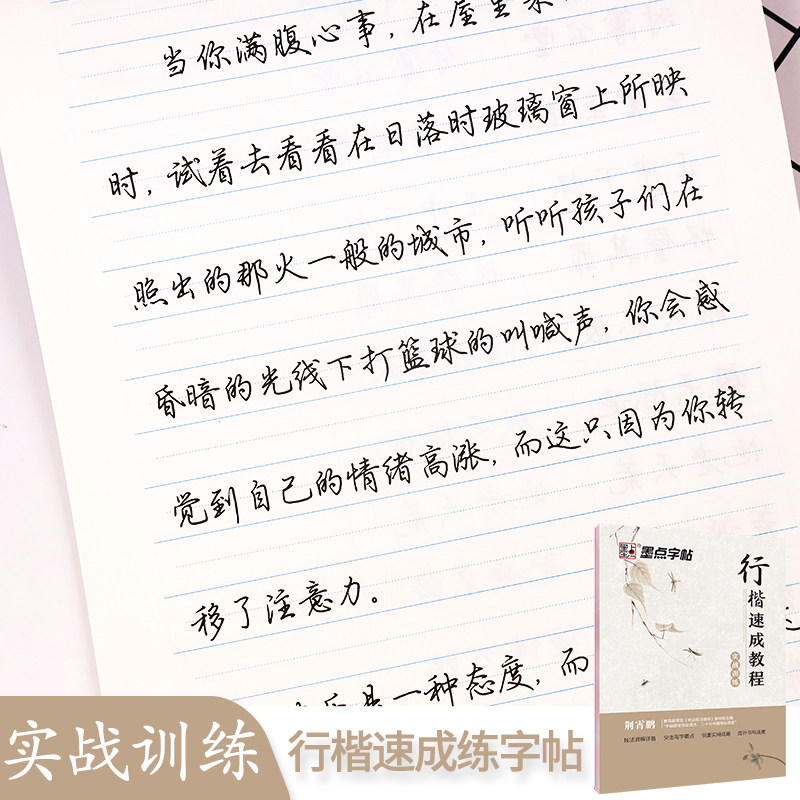 当你满腹心事，在屋里
时，试着去看看在日落时玻璃窗上所映
照出的那火一般的城市，听听孩子们在
昏暗的光线下打篮球的叫喊声，你会感
觉到自己的情绪高涨，而这只因为你转
移了注意力。
是一种态度，而
墨点字帖
行楷速成教程
实战训练
荆霄鹏
实战训练
行楷速成练字帖